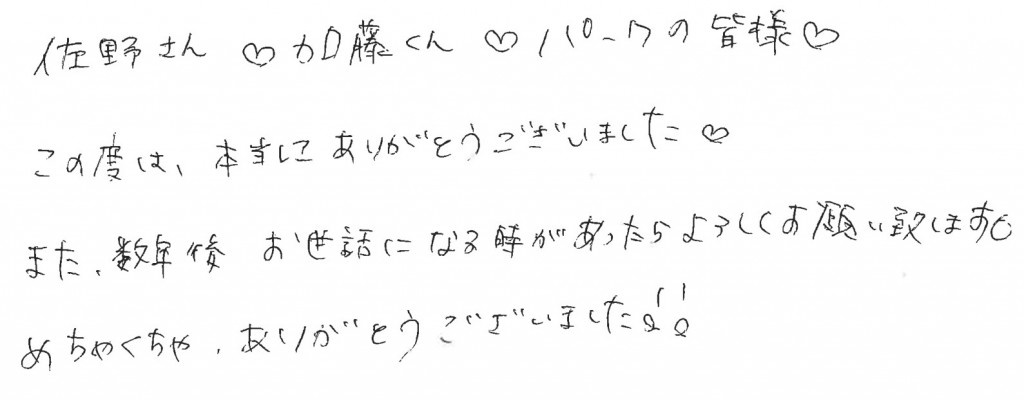 佐野さん ♡加藤くん ♡パークの皆様♡
この度は、本当に ありがとうございました♡
また、数年後 お世話になる時があったらよろしくお願い致します
めちゃくちゃ、ありがとうございました!!